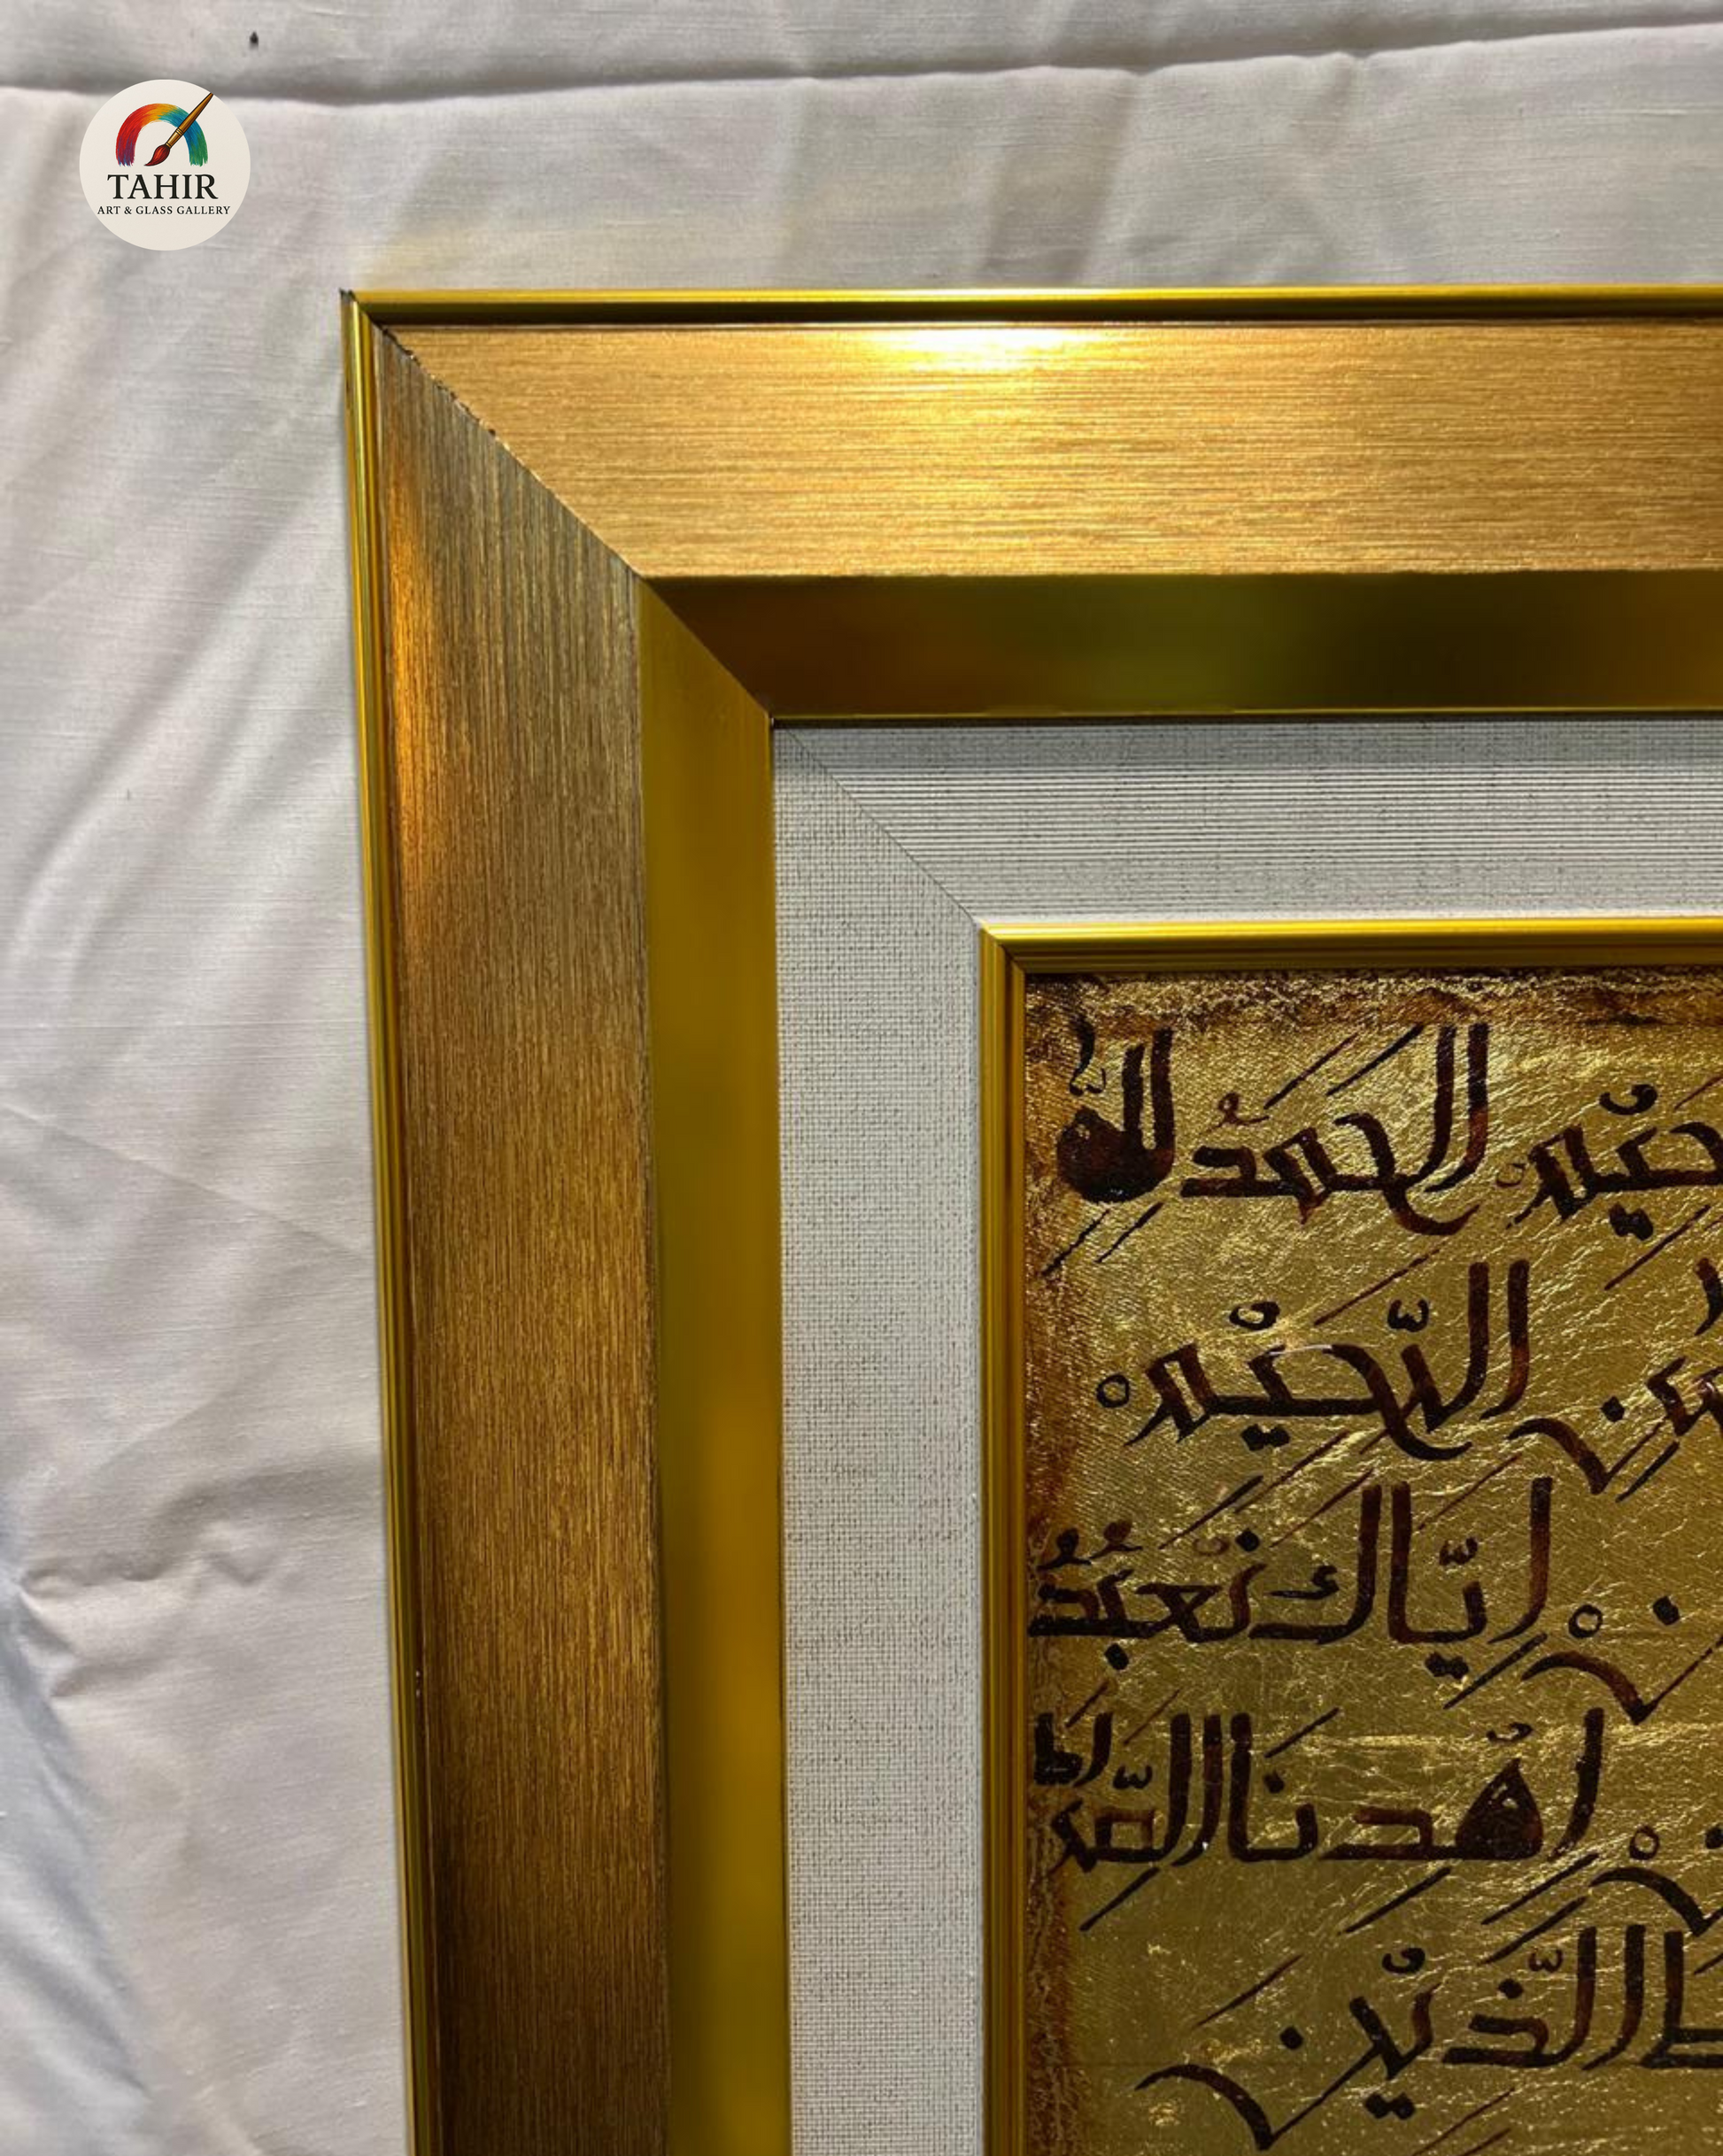 TAHIR
ART & GLASS GALLERY
حيْمِ الحمدُ للّٰه
الرّحيْمِ
اِيّاكَ نَعبُدُ
اِهْدِنَا الصِّراط
الَّذِيْنَ